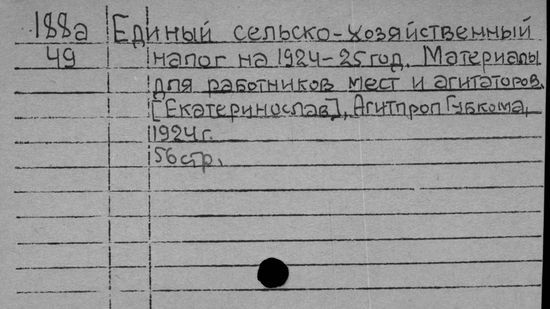 188а Единый сельско-хозяйственный
49 налог на 1924-25 год. Материалы
для работников мест и агитаторов.
[Екатеринослав], Агитпроп Губкома,
1924 г.
56 стр.